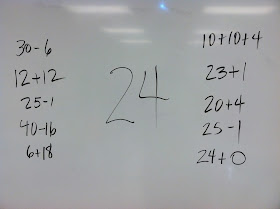 30-6
12+12
25-1
40-16
6+18
24
10+10+4
23+1
20+4
25-1
24+0